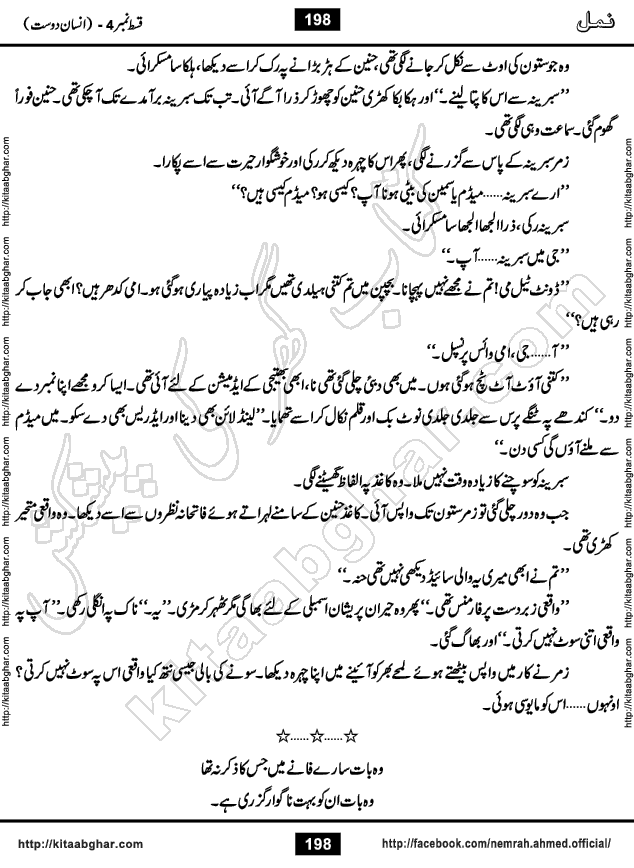 نمل
198
قسط نمبر 4 - (انسان دوست)
وہ جو ستون کی اوٹ سے نکل کر جانے لگی تھی، حنین کے ہڑبڑانے پہ رک کر اسے دیکھا، ہلکا سا مسکرائی۔
’’سبرینہ سے اس کا پتا لینے۔‘‘ اور ہکا بکا کھڑی حنین کو چھوڑ کر ذرا آگے آئی۔ تب تک سبرینہ برآمدے تک آ چکی تھی۔ حنین فوراً
گھوم گئی۔ ساعت وہی لگی تھی۔
زمر سبرینہ کے پاس سے گزرنے لگی، پھر اس کا چہرہ دیکھ کر رکی اور خوشگوار حیرت سے اسے پکارا۔
’’ارے سبرینہ......میڈم یاسمین کی بیٹی ہونا آپ؟ کیسی ہو؟ میڈم کیسی ہیں؟‘‘
سبرینہ رکی، ذرا الجھا الجھا سا مسکرائی۔
’’جی میں سبرینہ......آپ۔‘‘
’’ڈونٹ ٹیل می! تم نے مجھے نہیں پہچانا۔ بچپن میں تم کتنی ہیلدی تھیں مگر اب زیادہ پیاری ہو گئی ہو۔ امی کدھر ہیں؟ ابھی جاب کر
رہی ہیں؟‘‘
’’آ......جی، امی وائس پرنسپل۔‘‘
’’کتنی آؤٹ آف ٹچ ہو گئی ہوں۔ میں بھی دبئی چلی گئی تھی نا، ابھی بھتیجی کے ایڈمیشن کے لئے آئی تھی۔ ایسا کرو مجھے اپنا نمبر دے
دو۔‘‘ کندھے پہ ٹنگے پرس سے جلدی جلدی نوٹ بک اور قلم نکال کر اسے تھمایا۔ ’’لینڈ لائن بھی دینا اور ایڈریس بھی دے سکو۔ میں میڈم
سے ملنے آؤں گی کسی دن۔‘‘
سبرینہ کو سوچنے کا زیادہ وقت نہیں ملا۔ وہ کاغذ پہ الفاظ گھسیٹنے لگی۔
جب وہ دور چلی گئی تو زمر ستون تک واپس آئی۔ کاغذ حنین کے سامنے لہراتے ہوئے فاتحانہ نظروں سے اسے دیکھا۔ وہ واقعی متحیر
کھڑی تھی۔
’’تم نے ابھی میری یہ والی سائیڈ دیکھی نہیں تھی حنہ۔‘‘
’’واقعی زبردست پرفارمنس تھی۔‘‘ پھر وہ حیران پریشان اسمبلی کے لئے بھاگی مگر ٹھہر کر مڑی۔ ’’یہ۔‘‘ ناک پہ انگلی رکھی۔ ’’آپ پہ
واقعی اتنی سوٹ نہیں کرتی۔‘‘ اور بھاگ گئی۔
زمر نے کار میں واپس بیٹھتے ہوئے لمحے بھر کو آئینے میں اپنا چہرہ دیکھا۔ سونے کی بالی جیسی نتھ کیا واقعی اس پہ سوٹ نہیں کرتی؟
اونہوں......اس کو مایوسی ہوئی۔
☆......☆......☆
وہ بات سارے فسانے میں جس کا ذکر نہ تھا
وہ بات ان کو بہت ناگوار گزری ہے۔
http://kitaabghar.com
198
http://facebook.com/nemrah.ahmed.official/
http://kitaabghar.com http://kitaabghar.com http://kitaabghar.com http://kitaabghar.com http://kitaabghar.com http://kitaabghar.com
http://kitaabghar.com http://kitaabghar.com http://kitaabghar.com http://kitaabghar.com http://kitaabghar.com http://kitaabghar.com
کتاب گھر کی پیشکش
kitaabghar.com